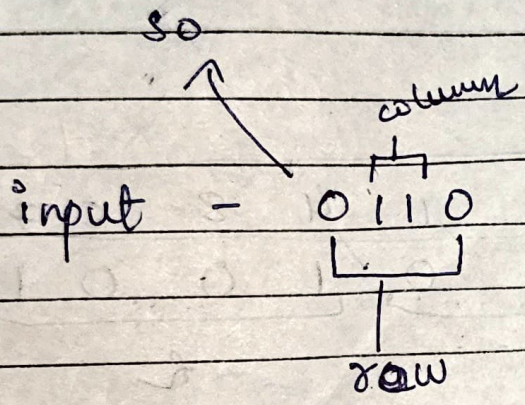 S0
column
input - 0110
row